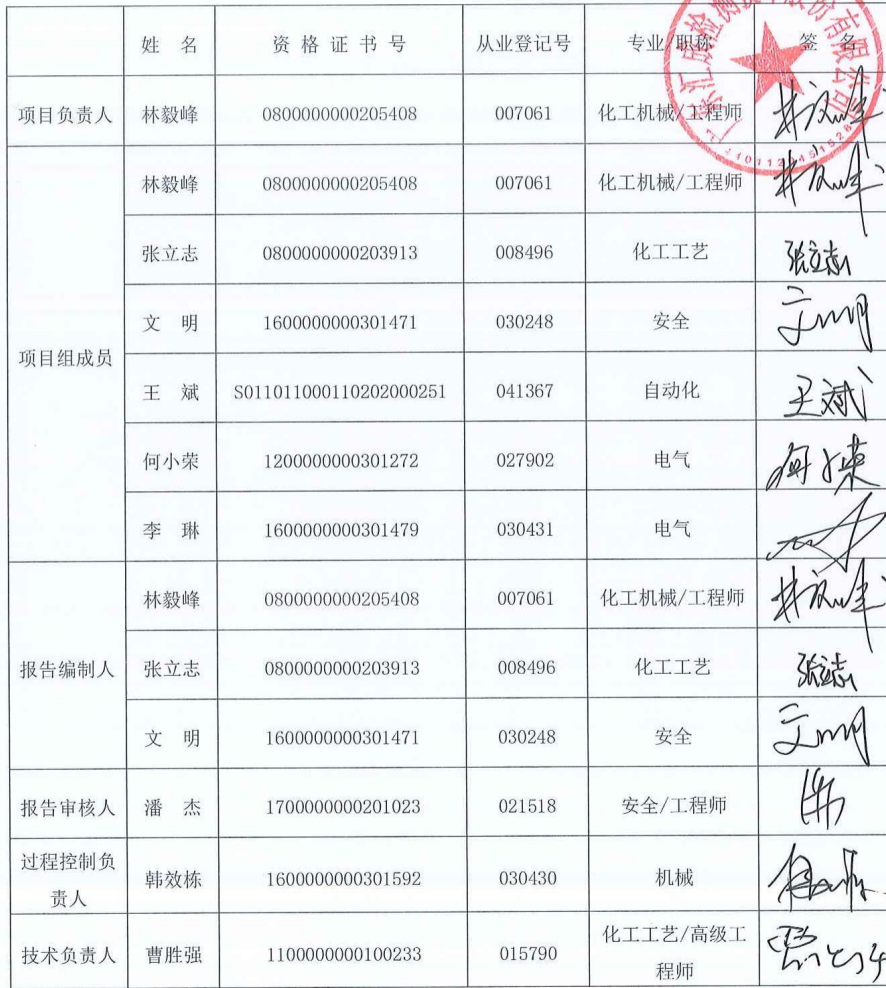 姓 名 资格证书号 从业登记号 专业/职称 签 名
项目负责人 林毅峰 0800000000205408 007061 化工机械/工程师 林毅峰
项目组成员 林毅峰 0800000000205408 007061 化工机械/工程师 林毅峰
张立志 0800000000203913 008496 化工工艺 张立志
文 明 1600000000301471 030248 安全 文明
王 斌 S011011000110202000251 041367 自动化 王斌
何小荣 1200000000301272 027902 电气 何小荣
李 琳 1600000000301479 030431 电气
报告编制人 林毅峰 0800000000205408 007061 化工机械/工程师 林毅峰
张立志 0800000000203913 008496 化工工艺 张立志
文 明 1600000000301471 030248 安全 文明
报告审核人 潘 杰 1700000000201023 021518 安全/工程师
过程控制负
责人 韩效栋 1600000000301592 030430 机械
技术负责人 曹胜强 1100000000100233 015790 化工工艺/高级工
程师